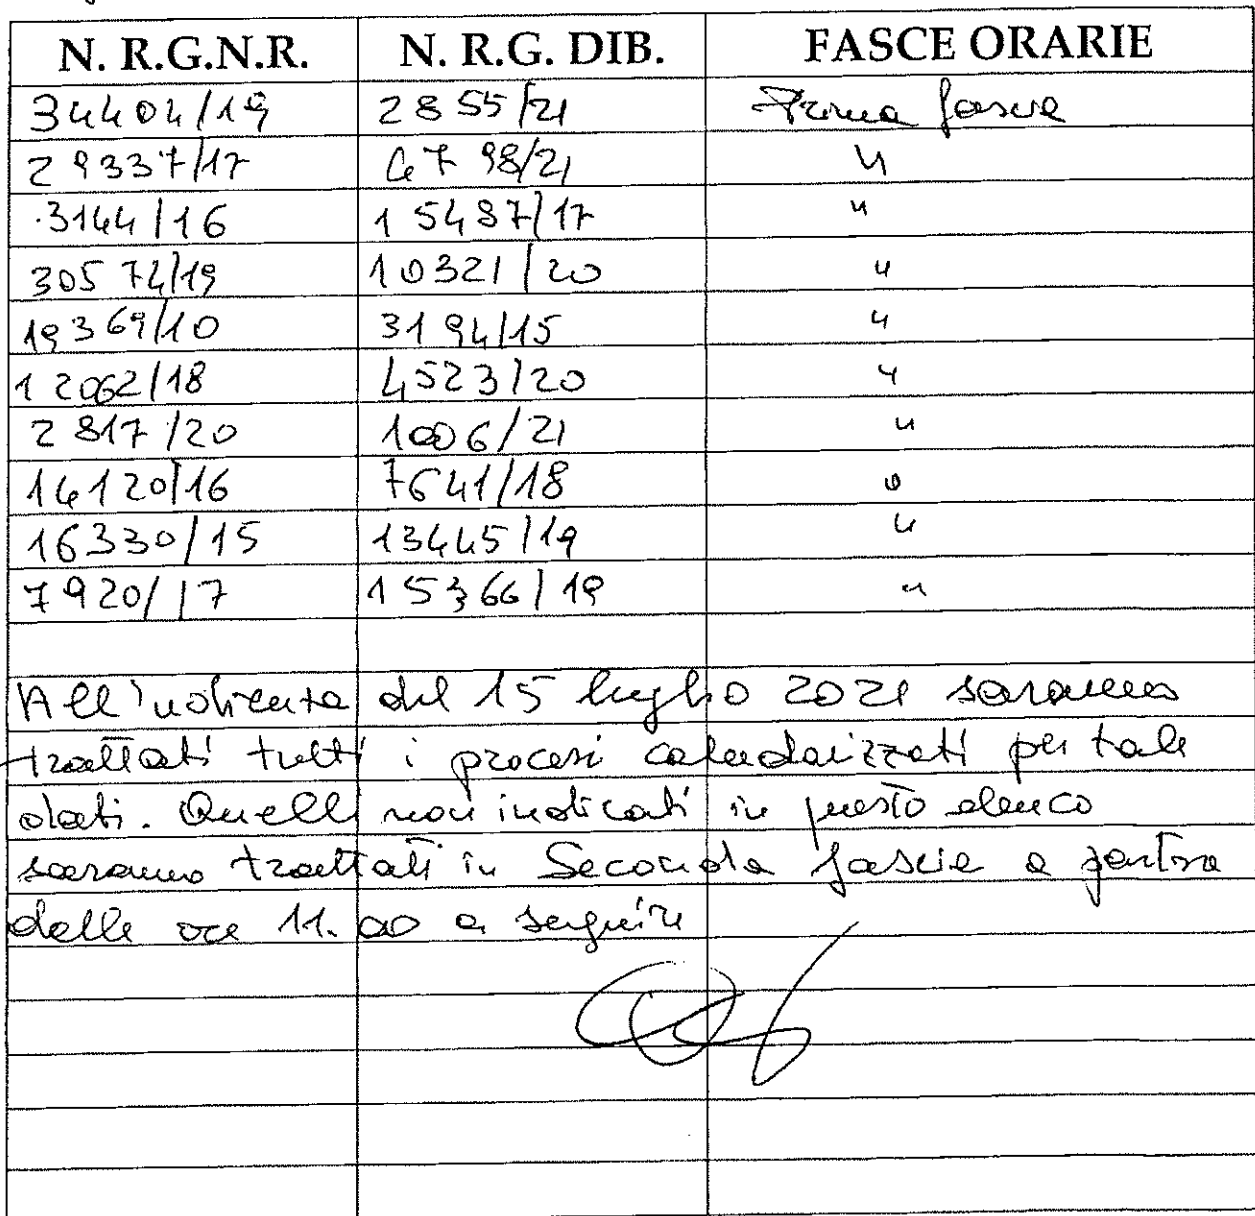 N. R.G.N.R. N. R.G. DIB. FASCE ORARIE
34404/19 2855/21 Prima fascia
29337/17 4798/21 "
3144/16 15487/17 "
30574/19 10321/20 "
19369/10 3194/15 "
12062/18 4523/20 "
2817/20 1006/21 "
14120/16 7641/18 "
16330/15 13445/19 "
7920/17 15366/19 "
All'udienza del 15 luglio 2021 saranno
trattati tutti i processi calendarizzati per tale
data. Quelli non indicati in questo elenco
saranno trattati in Seconda fascia a partire
dalle ore 11.00 a seguire